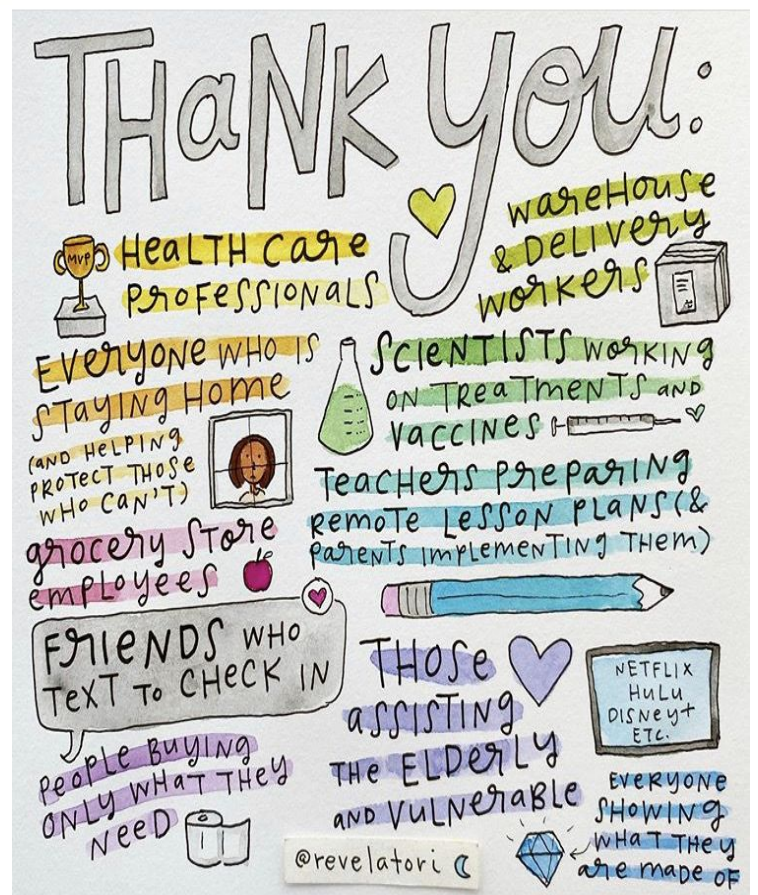 THaNK yOU:
HeaLTH Care
PROFESSIONaLS
MVP
wareHOUSe
& DeLIVery
WOrKerS
EVerYONe WHO IS
STayING HOme
(aND HeLPING
PrOTeCT THOSe
WHO CaN'T)
SCIENTISTS WOrKING
ON TreaTmeNTS aND
VaCCINeS
TeaCHerS PrePArING
remOTe LeSSON PLaNS (&
ParENTS ImPLemeNTING THem)
grOCery STOre
emPLOyeeS
FrIeNDS WHO
TeXT TO CHeCK IN
THOSe
aSSISTING
THe ELDerLy
aND VULNeraBLe
NETFLIX
HuLu
DISNey+
ETC.
PeOPLe BUyING
ONLy WHaT THey
NeeD
eVeryONe
SHOWING
WHaT THey
are maDe OF
@revelatori